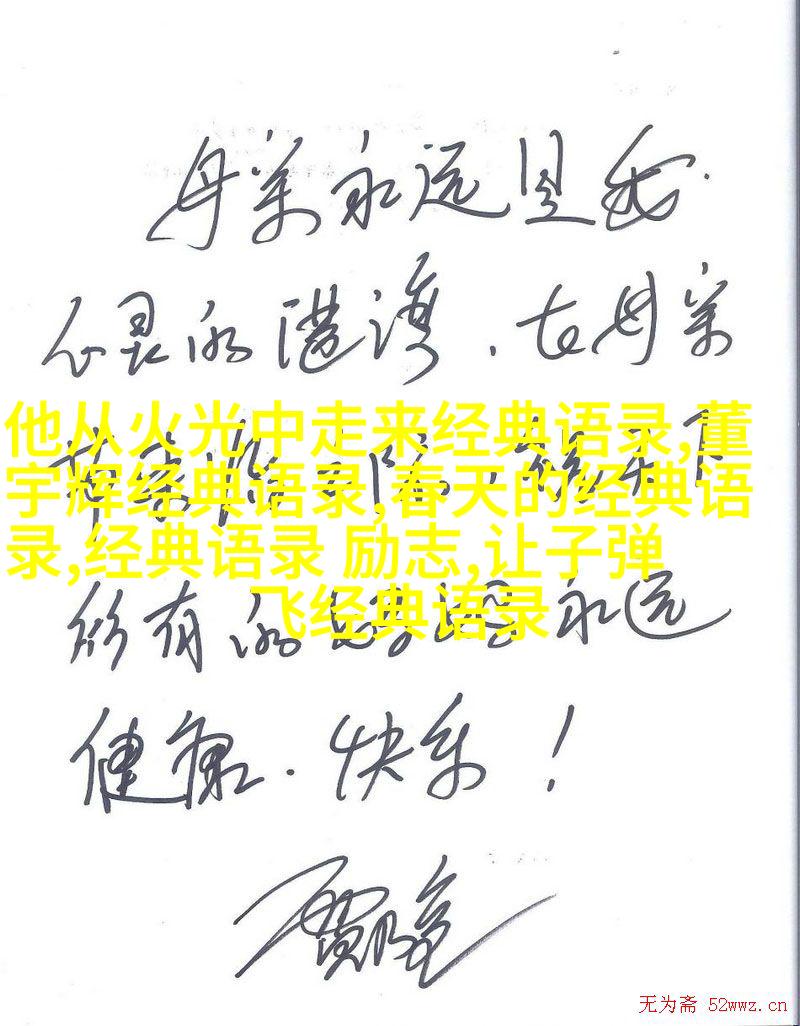 母亲永远是我
心灵的港湾，在母亲
他从火光中走来经典语录,董
宇辉经典语录,春天的经典语
录,经典语录 励志,让子弹
飞经典语录
所有的 永远
健康、快乐！
无为斋 52wwz.cn